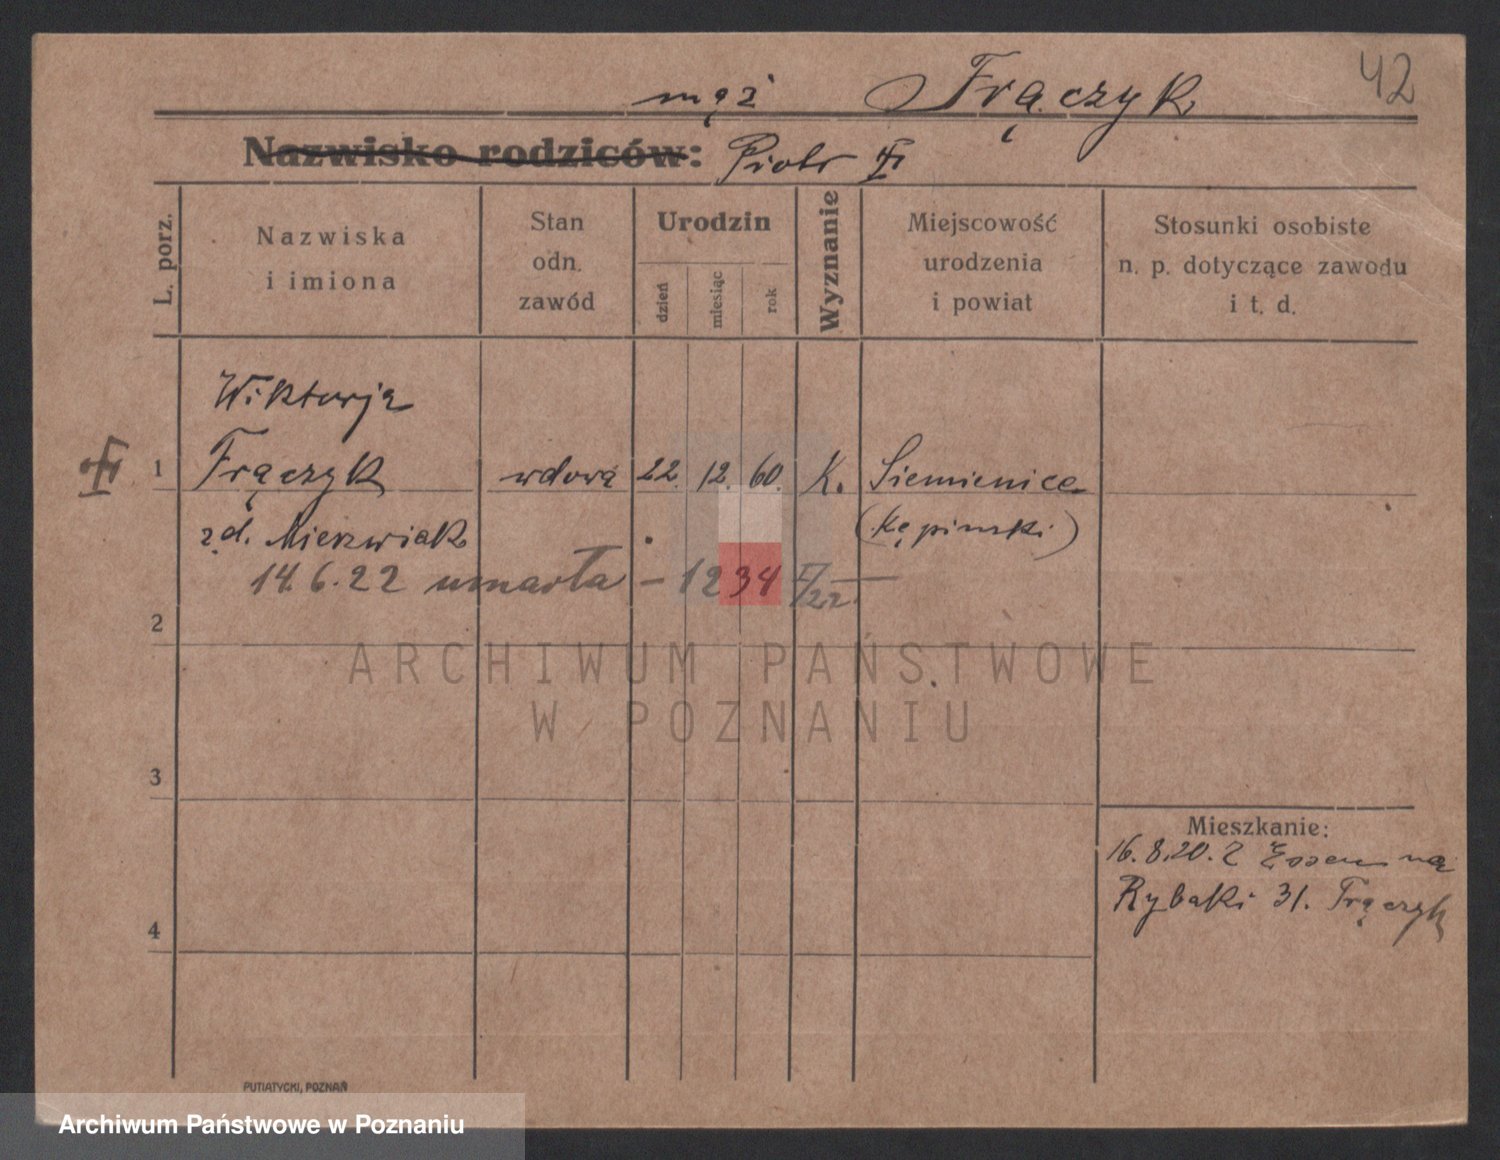 42
mąż Frączyk
Nazwisko rodziców: Piotr
L. porz.
Nazwiska
i imiona
Stan
odn.
zawód
Urodzin
dzień
miesiąc
rok
Wyznanie
Miejscowość
urodzenia
i powiat
Stosunki osobiste
n. p. dotyczące zawodu
i t. d.
Wiktorja
1 Frączyk wdowa 22. 12. 60. K. Siemienice
zd. Mierzwiak (Kępiński)
14.6.22 umarła - 1234
2
ARCHIWUM PAŃSTWOWE
W POZNANIU
3
Mieszkanie:
16.8.20. Z Essen na
Rybaki 31. Frączyk
4
PUTIATYCKI, POZNAŃ
Archiwum Państwowe w Poznaniu